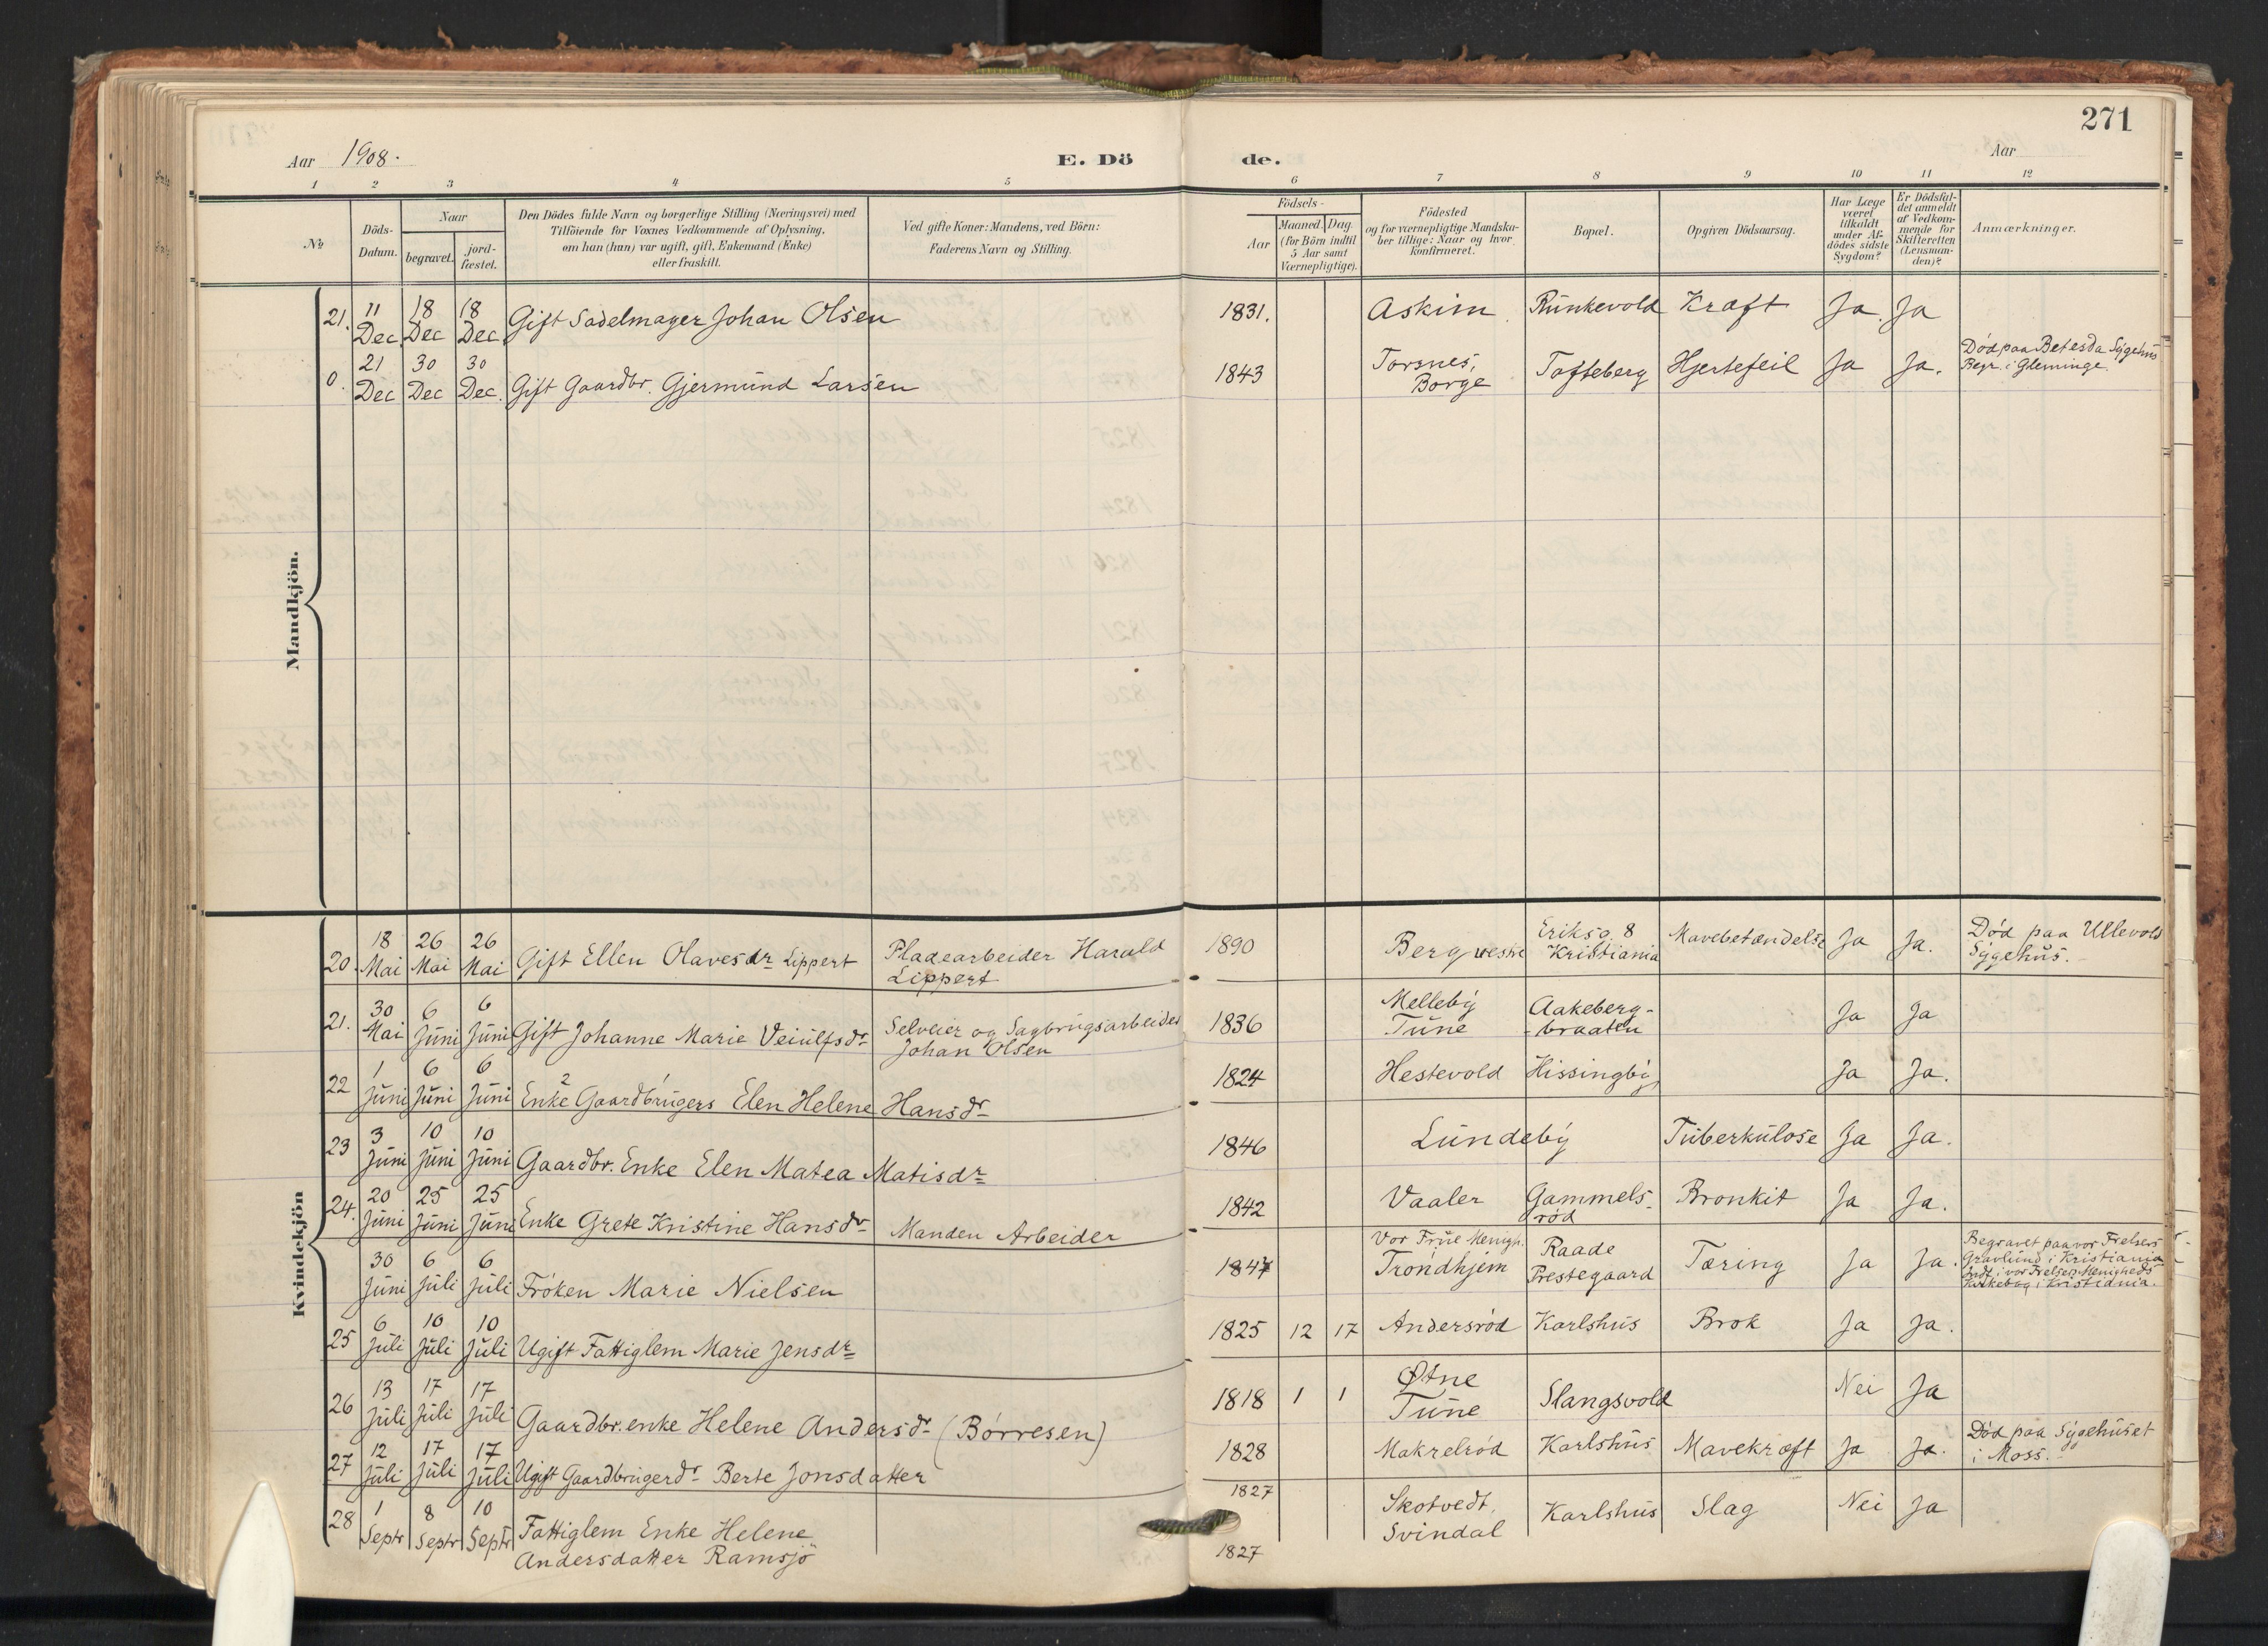 271
Aar 1908.
E. Dö
de.
Aar
1 2 3 4 5 6 7 8 9 10 11 12
No
Döds-
Datum.
Naar
begravet.
jord-
fæstet.
Den Dödes fulde Navn og borgerlige Stilling (Næringsvei) med
Tilföiende for Voxnes Vedkommende af Oplysning,
om han (hun) var ugift, gift, Enkemand (Enke)
eller fraskilt.
Ved gifte Koner: Mandens, ved Börn:
Faderens Navn og Stilling.
Födsels-
Aar
Maaned. Dag.
(for Börn indtil
5 Aar samt
Værnepligtige).
Födested
og for værnepligtige Mandska-
ber tillige: Naar og hvor
konfirmeret.
Bopæl.
Opgiven Dödsaarsag.
Har Læge
været
tilkaldt
under Af-
dödes sidste
Sygdom?
Er Dödsfal-
det anmeldt
af Vedkom-
mende for
Skifteretten
(Lensman-
den)?
Anmærkninger.
Mandkjön.
21. 11 Dec. 18 Dec 18 Dec. Gift Sadelmager Johan Olsen 1831. Askim Runkevold Kræft Ja. Ja
0. 21 Dec 30 Dec 30 Dec. Gift Gaardbr. Gjermund Larsen 1843 Torsnes, Borge Tofteberg Hjertefeil Ja Ja. Død paa Betesda Sygehus
Begr. i Glemminge.
Kvindekjön
20. 18 Mai 26 Mai 26 Mai Gift Ellen Olavesdr Lippert Pladearbeider Harald
Lippert 1890 Berg vestre Eriksg. 8
Kristiania Mavebetændelse Ja Ja. Død paa Ullevold
Sygehus.
21. 30 Mai 6 Juni 6 Juni Gift Johanne Marie Veiulfsdr Selveier og Sagbrugsarbeider
Johan Olsen 1836 Melleby
Tune Aakeberg-
braaten Ja Ja
22 1 Juni 6 Juni 6 Juni Enke 2 Gaardbrugers 1 Elen Helene Hansdr 1824 Hestevold Hissingby Ja Ja.
23 3 Juni 10 Juni 10 Juni Gaardbr. Enke Elen Matea Matisdr 1846 Lundeby Tuberkulose Ja Ja.
24. 20 Juni 25 Juni 25 Juni Enke Grete Kristine Hansdr Manden Arbeider 1842 Vaaler Gammels-
rød Bronkit Ja Ja.
30 Juni 6 Juli 6 Juli Frøken Marie Nielsen 1847 Vor Frue Menigh.
Trondhjem Raade
Prestegaard Tæring Ja Ja. Begravet paa vor Frelsers
Gravlund i Kristiania
Indf. i vor Frelsers Menigheds
Kirkebog i Kristiania.
25 6 Juli 10 Juli 10 Juli Ugift Fattiglem Marie Jensdr 1825 12 17 Andersrød Karlshus Brok Ja Ja.
26 13 Juli 17 Juli 17 Juli Gaardbr. enke Helene Andersdr (Børresen) 1818 1 1 Øtne
Tune Slangsvold Nei Ja
27 12 Juli 17 Juli 17 Juli Ugift Gaardbrugerdr Berte Jonsdatter 1828 Makrelrød Karlshus Mavekræft Ja Ja. Død paa Sygehuset
i Moss.
28 1 Septr 8 Septr 10 Septr Fattiglem Enke Helene
Andersdatter Ramsjö 1827 Skotvedt,
Svindal Karlshus Slag Nei Ja
1827